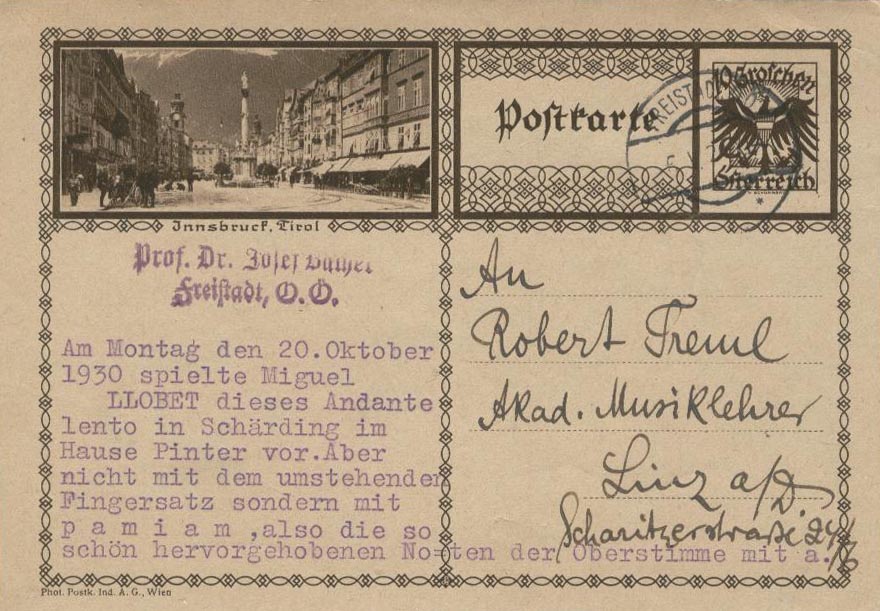 Postkarte
10 Groschen
Österreich
FREISTADT
Innsbruck, Tirol
Prof. Dr. Josef
Freistadt, O.Ö.
Am Montag den 20.Oktober
1930 spielte Miguel
LLOBET dieses Andante
lento in Schärding im
Hause Pinter vor.Aber
nicht mit dem umstehenden
Fingersatz sondern mit
p a m i a m ,also die so
schön hervorgehobenen No=ten der Oberstimme mit a.
An
Robert Treml
Akad. Musiklehrer
Linz a/D.
Scharitzerstraße
Phot. Postk. Ind. A. G., Wien